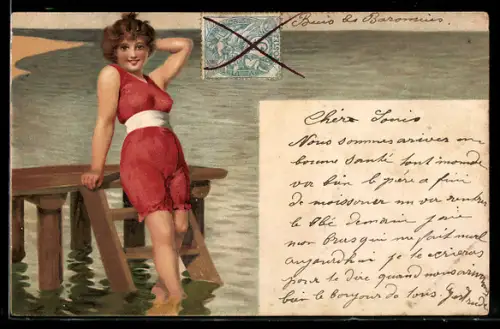 Buis les Baronnies.
Chère Louis
Nous sommes arriver en
bonne santé tout monde
va bien le père a fini
de moissoner on va rentre
le blé demain j'aie
mon bras qui me fait mal
aujourdhui je te ecrierais
pour te dire quand nous
bien le bonjour de tous.